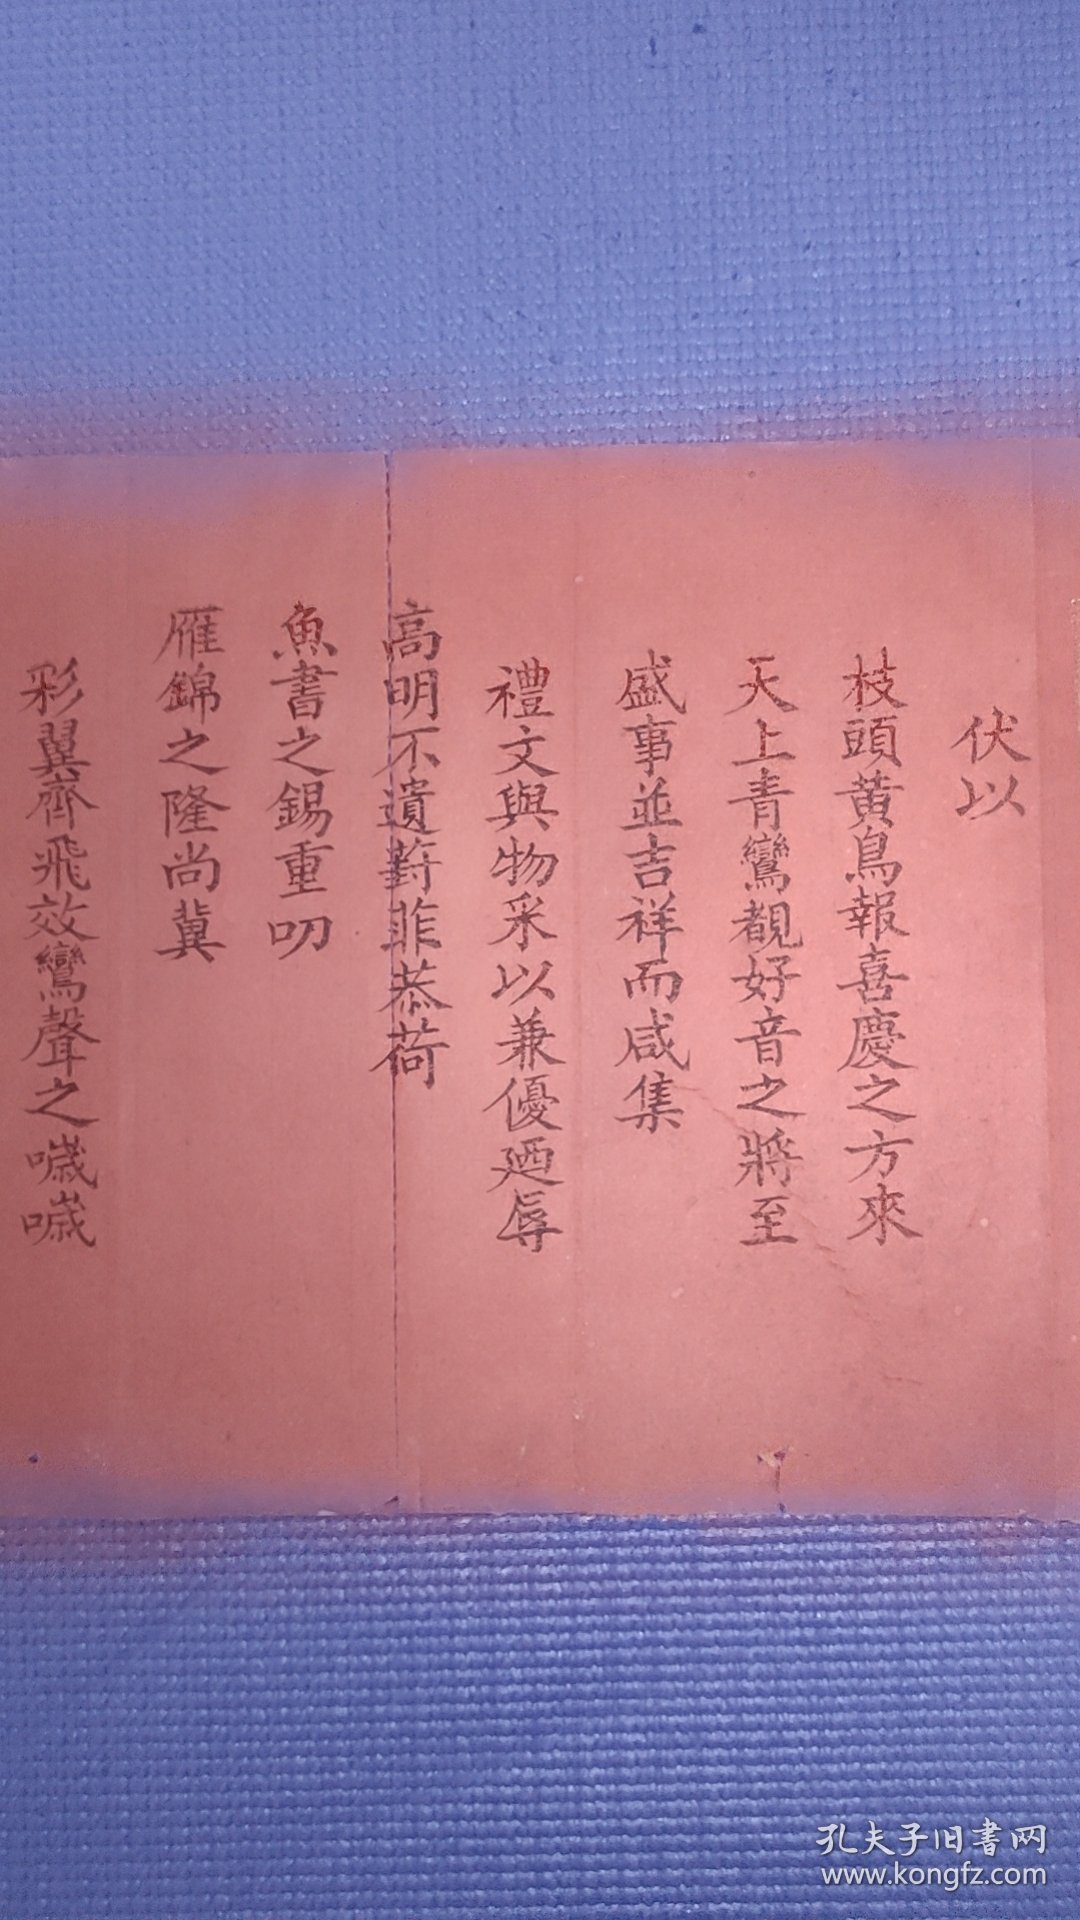 伏以
枝頭黄鳥報喜慶之方來
天上青鸞覩好音之將至
盛事並吉祥而咸集
禮文與物采以兼優廼辱
高明不遺葑菲恭荷
魚書之錫重叨
雁錦之隆尚冀
彩翼齊飛效鸞聲之噦噦
孔夫子旧書网
www.kongfz.com